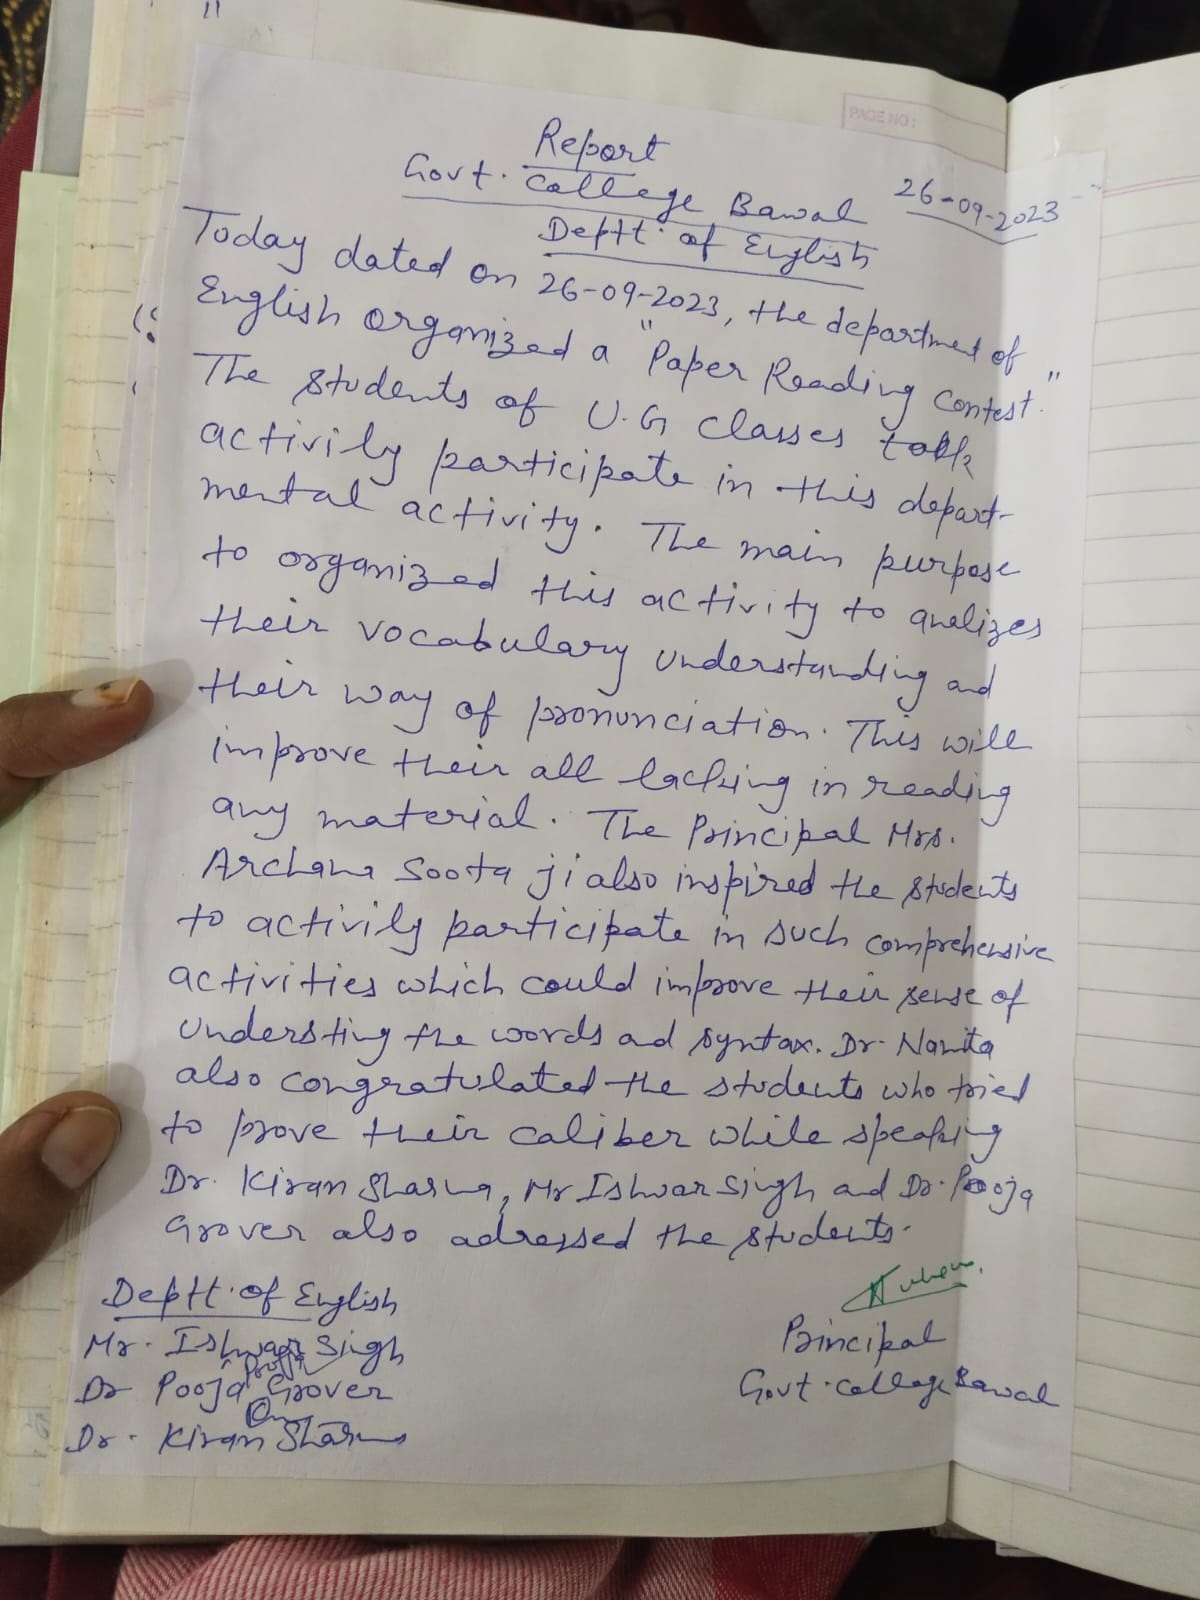 PAGE NO:
Report
Govt. College Bawal 26-09-2023
Deptt. of English
Today dated on 26-09-2023, the department of
English organized a "Paper Reading Contest."
The students of U.G classes
activily participate in this depart-
mental activity. The main purpose
to organized this activity to analizes
their vocabulary understanding and
their way of pronunciation. This will
improve their all lacking in reading
any material. The Principal Mrs.
Archana Soota ji also inspired the students
to activily participate in such comprehensive
activities which could improve their sense of
understing the words and syntax. Dr. Namita
also congratulated the students who tried
to prove their caliber while speaking
Dr. Kiran Sharma, Mr Ishwar Singh and Dr. Pooja
Grover also adressed the students.
Deptt. of English
Mr. Ishwar Singh
Dr Pooja Grover
Dr. Kiran Sharma
Principal
Govt. College Bawal